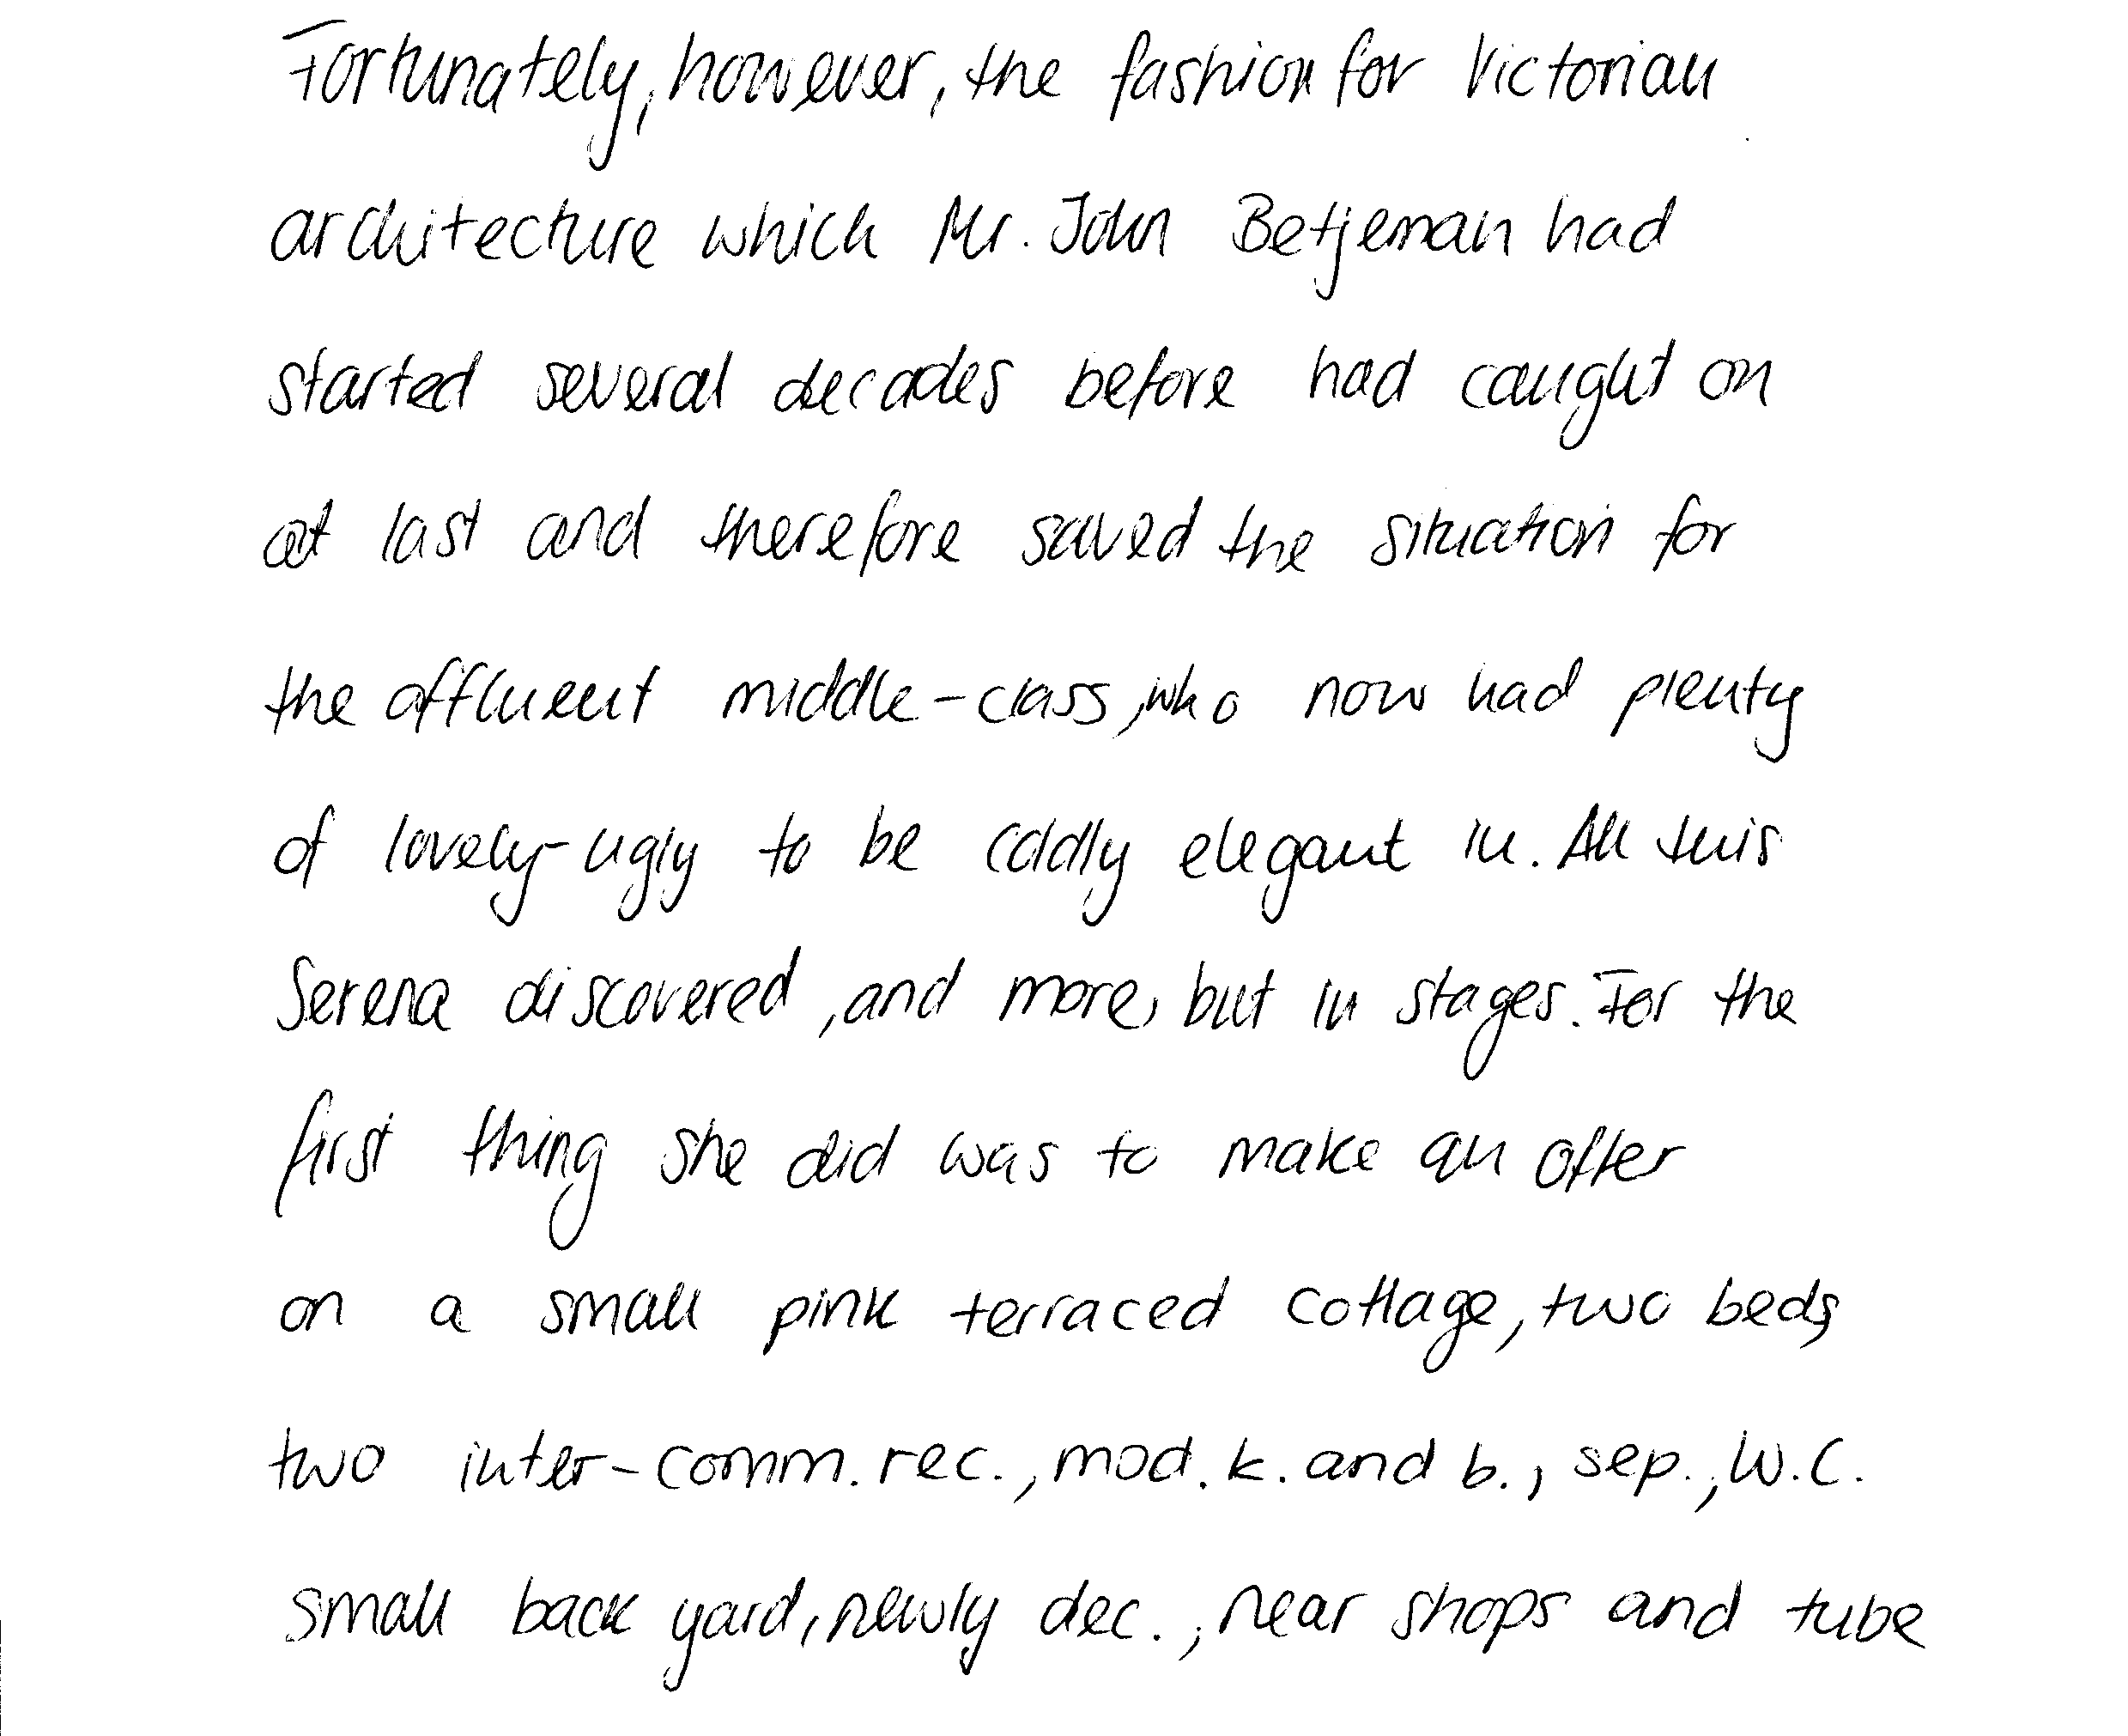 Fortunately, however, the fashion for Victorian
architecture which Mr. John Betjeman had
started several decades before had caught on
at last and therefore saved the situation for
the affluent middle-class, who now had plenty
of lovely-ugly to be oddly elegant in. All this
Serena discovered, and more, but in stages. For the
first thing she did was to make an offer
on a small pink terraced cottage, two beds,
two inter-comm. rec., mod. k. and b., sep., W.C.
small back yard, newly dec., near shops and tube